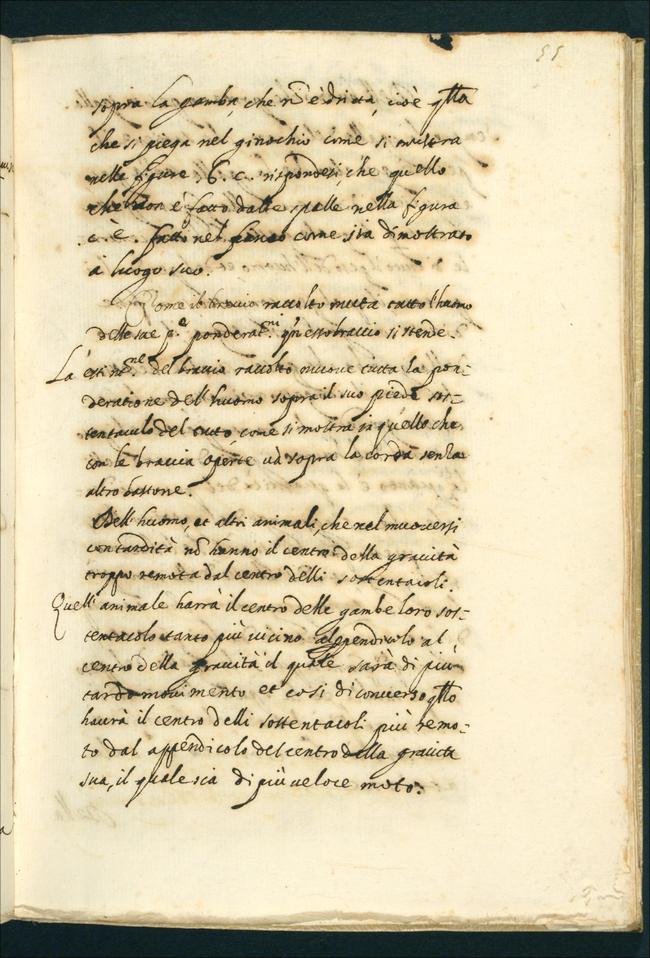 55
sopra la gamba, che nõ è drita, cioè q̃llo
che si piega nel ginochio come si mostra
nelle figure .b. c. rispondesi, che quello
che non è fatto dalle spalle nella figura
.c. è. fatto nel fianco come sia dimostrato
a luogo suo.
Come il braccio raccolto muta tutto l'huomo
delle sue p.e ponderat.ni q'n esso braccio si stende.
La estẽn.ne del braccio raccolto muove tutta la pon-
deratione dell'huomo sopra il suo piede sos-
tentaculo del tutto come si mostra in quello che
con le braccia aperte và sopra la corda senza
altro bastone.
Dell huomo, et altri animali, che nel muoversi
con tardità nõ hanno il centro della gravità
troppo remota dal centro delli sostentacoli.
Quell' animale harrà il centro delle gambe loro sos-
tentacolo tanto più vicino al
centro della gravità il quale sarà di più
tardo movimento et così di converso q̃llo
haurà il centro delli sostentacoli più remo-
to dal appendicolo del centro della gravità
sua, il quale sia di più veloce moto: